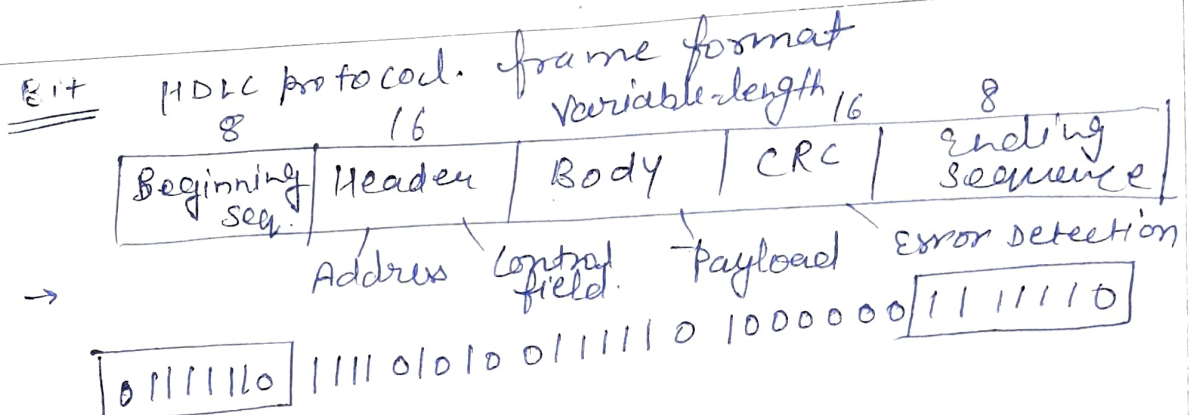 Bit HDLC protocol. frame format
8 16 variable-length 16 8
Beginning seq. Header Body CRC Ending Sequence
Address Control field. Payload Error Detection
→ 01111110 1111 01010 0111110 1000000 1111110